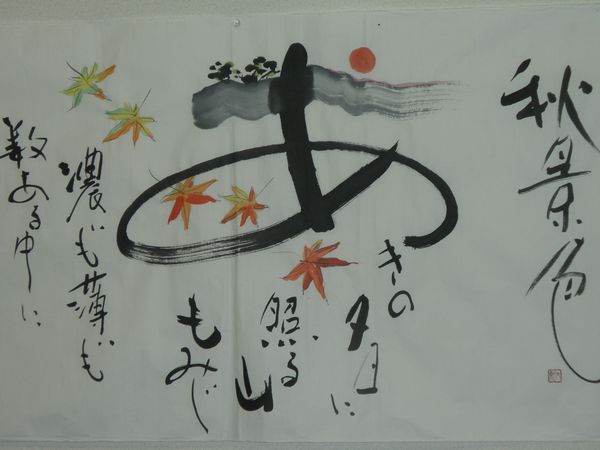 秋景色
あ
きの
夕日に
照る山
もみじ
濃いも薄いも
数ある中に